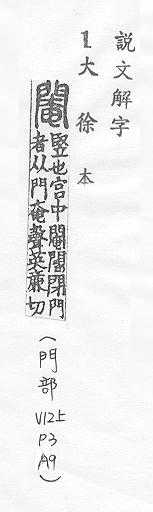 說文解字
1大徐本
閹
豎也宮中閹閽閉門
者从門奄聲英廉切
(門部
V12上
P3
A9)